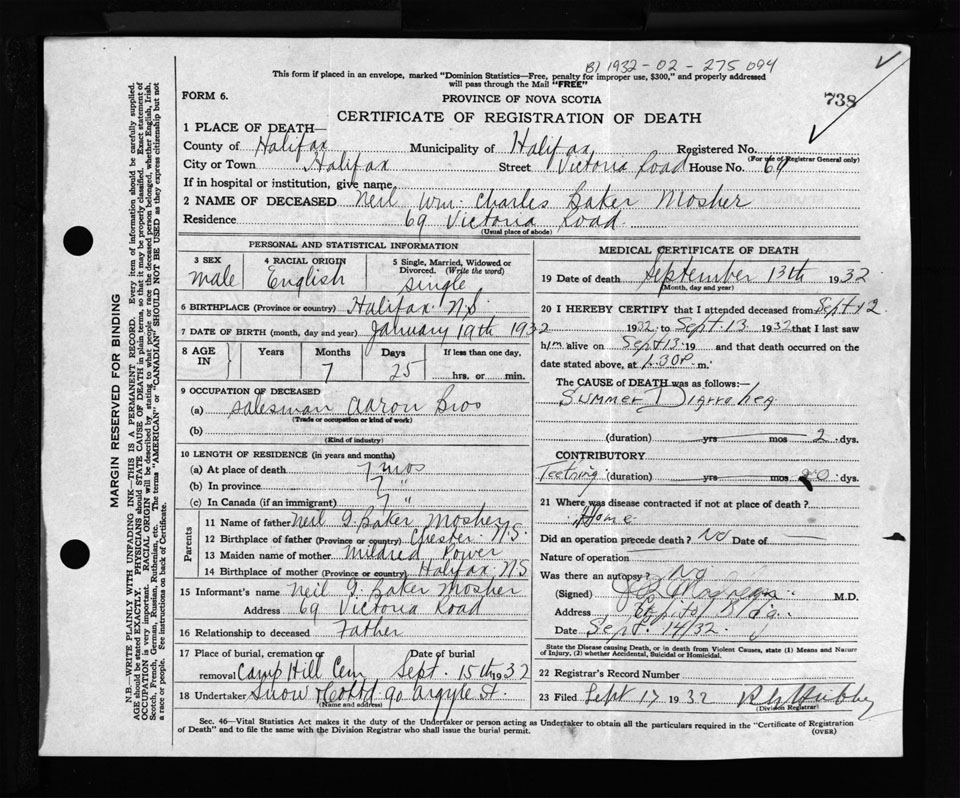 B) 1932-02-275094
This form if placed in an envelope, marked "Dominion Statistics—Free, penalty for improper use, $300," and properly addressed
will pass through the Mail "FREE"
FORM 6.
PROVINCE OF NOVA SCOTIA
738
CERTIFICATE OF REGISTRATION OF DEATH
1 PLACE OF DEATH—
County of Halifax Municipality of Halifax Registered No.
(For use of Registrar General only)
City or Town Halifax Street Victoria Road House No. 69
If in hospital or institution, give name
2 NAME OF DECEASED Neil Wm. Charles Baker Mosher
Residence 69 Victoria Road
(Usual place of abode)
PERSONAL AND STATISTICAL INFORMATION
3 SEX 4 RACIAL ORIGIN 5 Single, Married, Widowed or Divorced. (Write the word)
Male English Single
6 BIRTHPLACE (Province or country) Halifax. N.S.
7 DATE OF BIRTH (month, day and year) January 19th 1932
8 AGE IN Years Months Days If less than one day,
7 25 hrs. or min.
9 OCCUPATION OF DECEASED
(a) Salesman Aaron Bros
(Trade or occupation or kind of work)
(b)
(Kind of industry)
10 LENGTH OF RESIDENCE (in years and months)
(a) At place of death 7 mos
(b) In province 7 "
(c) In Canada (if an immigrant) 7 "
Parents
11 Name of father Neil G. Baker Mosher
12 Birthplace of father (Province or country) Chester. N.S.
13 Maiden name of mother Mildred Power
14 Birthplace of mother (Province or country) Halifax N.S
15 Informant's name Neil G. Baker Mosher
Address 69 Victoria Road
16 Relationship to deceased Father
17 Place of burial, cremation or removal Camp Hill Cem Date of burial Sept. 15th 1932
18 Undertaker Snow & Co Ltd 90 Argyle St.
(Name and address)
MEDICAL CERTIFICATE OF DEATH
19 Date of death September 13th 1932
(Month, day and year)
20 I HEREBY CERTIFY that I attended deceased from Sept 12
1932 to Sept. 13 1932 that I last saw
him alive on Sept 13 19 and that death occurred on the
date stated above, at 1.30 P. m.
The CAUSE of DEATH was as follows:—
Summer Diarrohea
(duration) yrs mos 2 dys.
CONTRIBUTORY
Teething (duration) yrs mos dys.
21 Where was disease contracted if not at place of death?
Home
Did an operation precede death? No Date of
Nature of operation
Was there an autopsy? No
(Signed) M.D.
Address Capitol Bldg.
Date Sept. 14/32.
State the Disease causing Death, or in death from Violent Causes, state (1) Means and Nature
of Injury, (2) whether Accidental, Suicidal or Homicidal.
22 Registrar's Record Number
23 Filed Sept 17 1932
(Division Registrar)
Sec. 46—Vital Statistics Act makes it the duty of the Undertaker or person acting as Undertaker to obtain all the particulars required in the "Certificate of Registration
of Death" and to file the same with the Division Registrar who shall issue the burial permit.
(OVER)
MARGIN RESERVED FOR BINDING
N.B.—WRITE PLAINLY WITH UNFADING INK—THIS IS A PERMANENT RECORD. Every item of information should be carefully supplied.
AGE should be stated EXACTLY. PHYSICIANS should STATE CAUSE OF DEATH in plain terms, so that it may be properly classified. Exact statement of
OCCUPATION is very important. RACIAL ORIGIN will be described by stating to what people or race the deceased person belonged, whether English, Irish,
Scotch, French, German, Russian, Ruthenian, etc. The terms "AMERICAN" or "CANADIAN" SHOULD NOT BE USED as they express citizenship but not
a race or people. See instructions on back of Certificate.